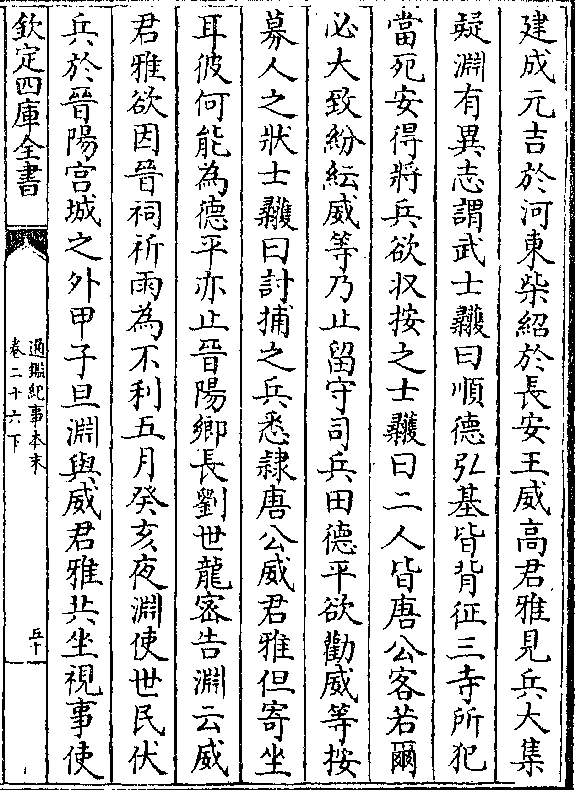 建成元吉於河東柴紹於長安王威高君雅見兵大集
疑淵有異志謂武士彠曰順德弘基皆背征三寺所犯
當死安得將兵欲収按之士彠曰二人皆唐公客若爾
必大致紛紜威等乃止留守司兵田德平欲勸威等按
募人之狀士彠曰討捕之兵悉隸唐公威君雅但寄坐
耳彼何能為德平亦止晉陽鄉長劉世龍宻告淵云威
君雅欲因晉祠祈雨為不利五月癸亥夜淵使世民伏
兵於晉陽宫城之外甲子旦淵與威君雅共坐視事使
欽定四庫全書
通鑑紀事本末
卷二十六下
五十